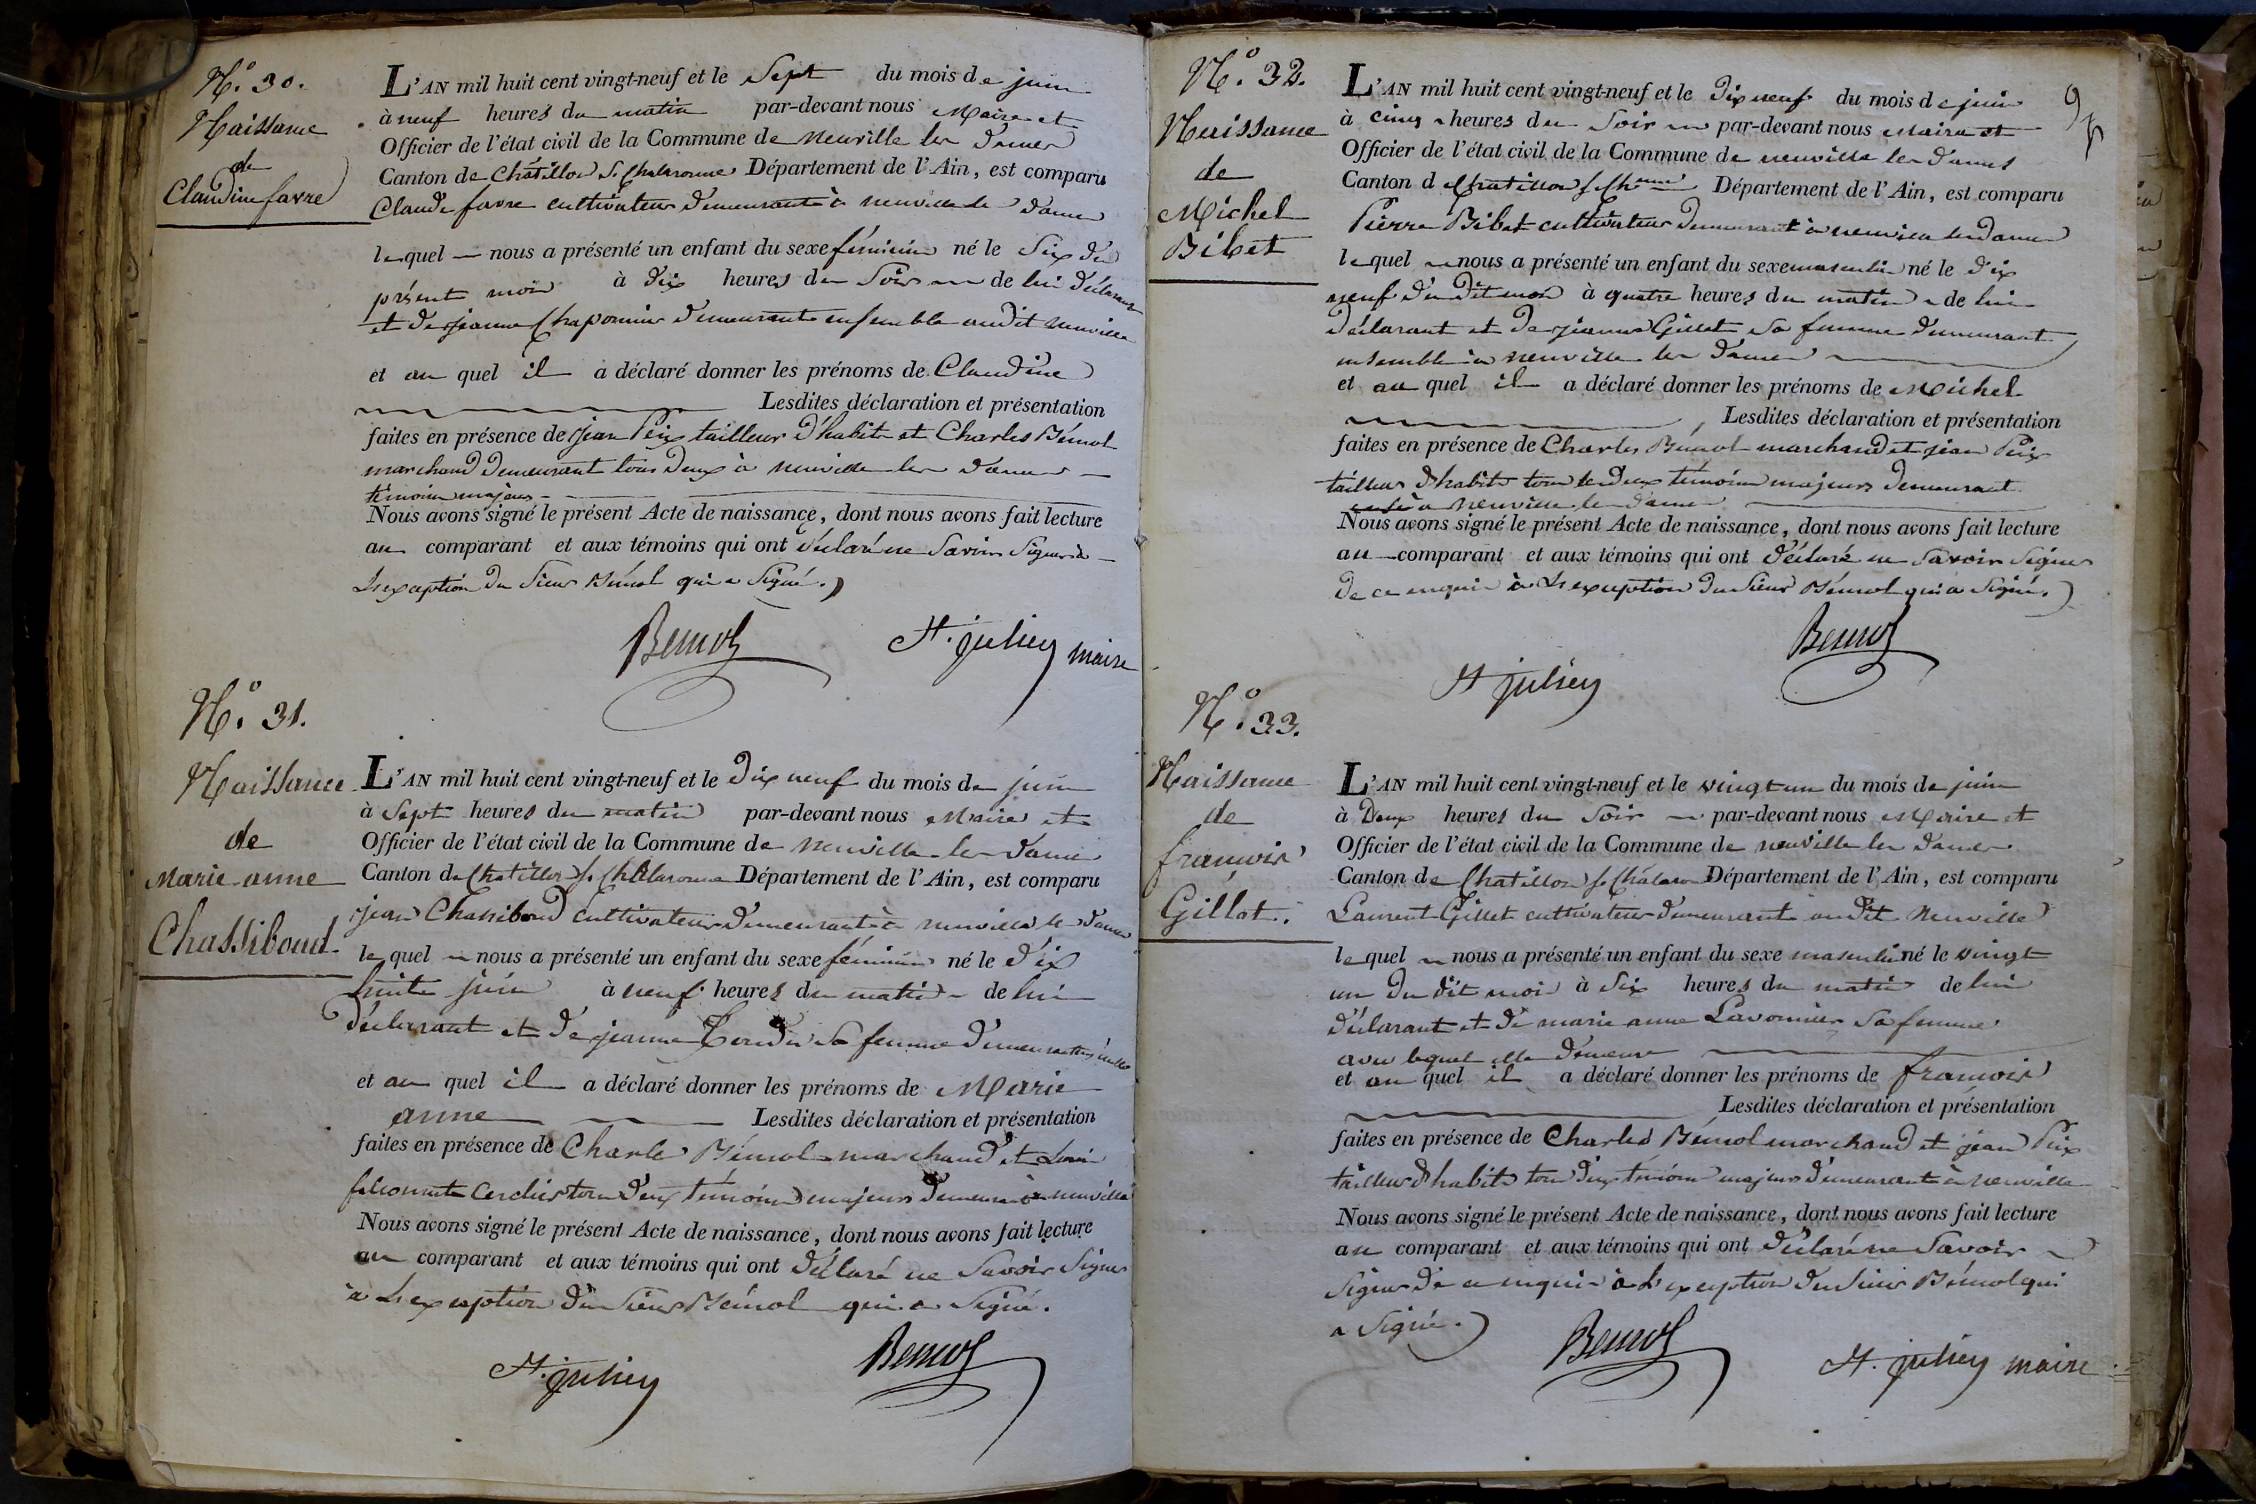 N.º 30.
Naissance
de
Claudine favre
L'AN mil huit cent vingt-neuf et le Sept du mois de juin
à neuf heures du matin par-devant nous Maire et
Officier de l'état civil de la Commune de Neuville les Dames
Canton de Châtillon s. Chalaronne Département de l'Ain, est comparu
Claude favre cultivateur demeurant à neuville les dames
lequel nous a présenté un enfant du sexe féminin né le Six du
présent mois à dix heures du Soir de lui déclarant
et de jeanne Chaponnier demeurants ensemble audit neuville
et au quel il a déclaré donner les prénoms de Claudine
Lesdites déclaration et présentation
faites en présence de jean Peix tailleur d'habits et Charles Bémol
marchand demeurant tous deux à neuville les dames
témoins majeurs
Nous avons signé le présent Acte de naissance, dont nous avons fait lecture
au comparant et aux témoins qui ont déclaré ne Savoir Signer à
L'exception du Sieur Bémol qui a Signé.
Bemol St. julien maire
N.º 31.
Naissance
de
Marie-anne
Chassiboud
L'AN mil huit cent vingt-neuf et le dix neuf du mois de juin
à Sept heures du matin par-devant nous Maire et
Officier de l'état civil de la Commune de Neuville les dames
Canton de Chatillon s. Chalaronne Département de l'Ain, est comparu
jean Chassiboud Cultivateur demeurant à neuville les dames
lequel nous a présenté un enfant du sexe féminin né le dix
huit juin à neuf heures du matin de lui
déclarant et de jeanne sa femme
et au quel il a déclaré donner les prénoms de Marie
anne Lesdites déclaration et présentation
faites en présence de Charles Bémol marchand et Louis
tous deux témoins majeurs demeurant à neuville
Nous avons signé le présent Acte de naissance, dont nous avons fait lecture
au comparant et aux témoins qui ont déclaré ne Savoir Signer
à L'exception du Sieur Bémol qui a Signé.
St. julien Bemol
N.º 32.
Naissance
de
Michel
Bibet
L'AN mil huit cent vingt-neuf et le dix neuf du mois de juin
à cinq heures du Soir par-devant nous Maire et
Officier de l'état civil de la Commune de neuville les dames
Canton de Chatillon s. Ch.nne Département de l'Ain, est comparu
Pierre Bibet cultivateur demeurant à neuville les dames
lequel nous a présenté un enfant du sexe masculin né le dix
neuf du dit mois à quatre heures du matin de lui
déclarant et de jeanne Gillet Sa femme demeurant
ensemble à neuville les dames
et au quel il a déclaré donner les prénoms de Michel
Lesdites déclaration et présentation
faites en présence de Charles Bémol marchand et jean Peix
tailleur d'habits tous les deux témoins majeurs demeurant
à neuville les dames
Nous avons signé le présent Acte de naissance, dont nous avons fait lecture
au comparant et aux témoins qui ont déclaré ne Savoir Signer
de ce enquis à L'exception du Sieur Bémol qui a Signé.
Bemol
St julien
N.º 33.
Naissance
de
françois
Gillet.
L'AN mil huit cent vingt-neuf et le vingt un du mois de juin
à Deux heures du Soir par-devant nous Maire et
Officier de l'état civil de la Commune de neuville les dames
Canton de Chatillon s. Chalaron Département de l'Ain, est comparu
Laurent Gillet cultivateur demeurant audit Neuville
lequel nous a présenté un enfant du sexe masculin né le vingt
un du dit mois à Six heures du matin de lui
déclarant et de marie anne Lavonnier Sa femme
avec lequel elle demeure
et au quel il a déclaré donner les prénoms de françois
Lesdites déclaration et présentation
faites en présence de Charles Bémol marchand et jean Peix
tailleur d'habits tous deux témoins majeurs demeurant à neuville
Nous avons signé le présent Acte de naissance, dont nous avons fait lecture
au comparant et aux témoins qui ont déclaré ne Savoir
Signer de ce enquis à L'exception du Sieur Bémol qui
a Signé.
Bemol St. julien maire